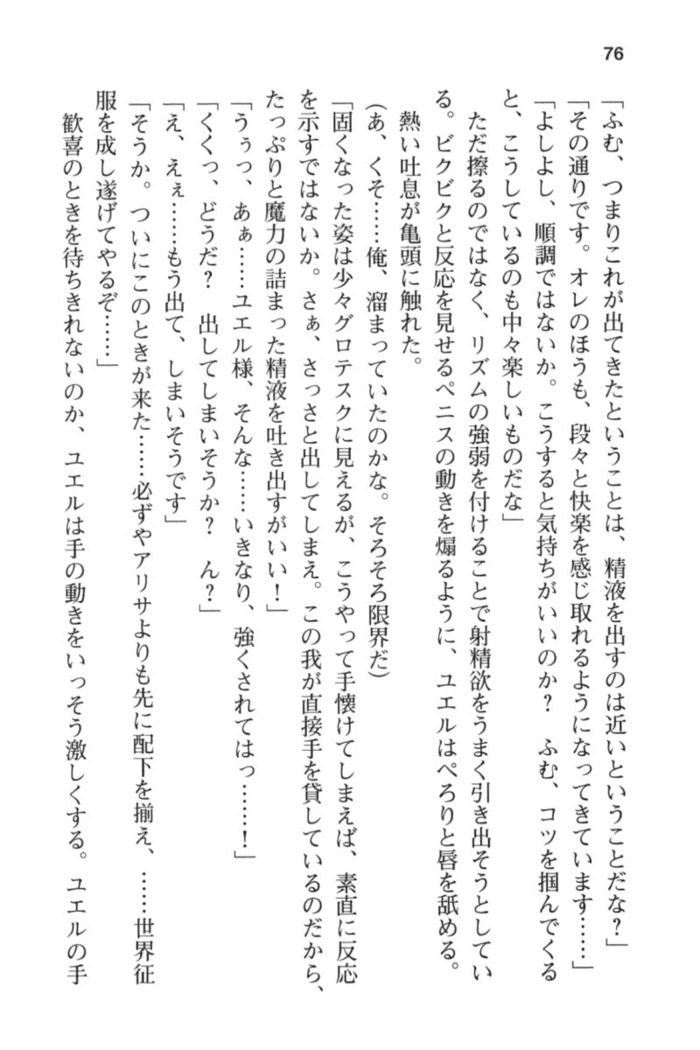 76
「ふむ、つまりこれが出てきたということは、精液を出すのは近いということだな?」
「その通りです。オレのほうも、段々と快楽を感じ取れるようになってきています……」
「よしよし、順調ではないか。こうすると気持ちがいいのか? ふむ、コツを掴んでくる
と、こうしているのも中々楽しいものだな」
ただ擦るのではなく、リズムの強弱を付けることで射精欲をうまく引き出そうとしてい
る。ビクビクと反応を見せるペニスの動きを煽るように、ユエルはぺろりと唇を舐める。
熱い吐息が亀頭に触れた。
(あ、くそ……俺、溜まっていたのかな。そろそろ限界だ)
「固くなった姿は少々グロテスクに見えるが、こうやって手懐けてしまえば、素直に反応
を示すではないか。さぁ、さっさと出してしまえ。この我が直接手を貸しているのだから、
たっぷりと魔力の詰まった精液を吐き出すがいい!」
「うぅっ、あぁ……ユエル様、そんな……いきなり、強くされてはっ……!」
「くくっ、どうだ? 出してしまいそうか? ん?」
「え、えぇ……もう出て、しまいそうです」
「そうか。ついにこのときが来た……必ずやアリサよりも先に配下を揃え、……世界征
服を成し遂げてやるぞ……」
歓喜のときを待ちきれないのか、ユエルは手の動きをいっそう激しくする。ユエルの手